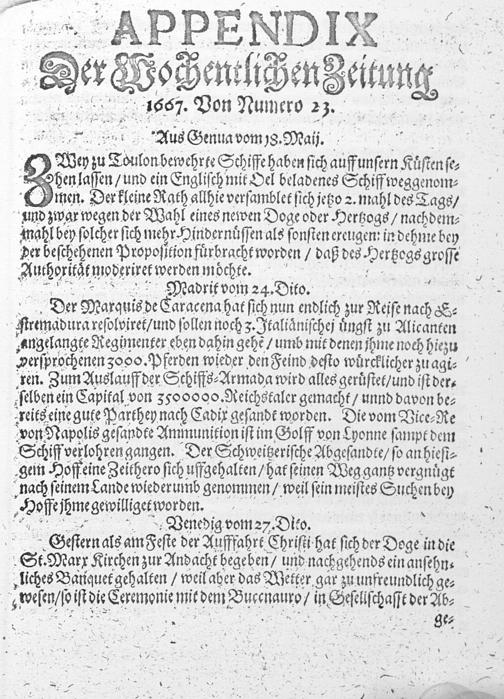 APPENDIX
Der Wochentlichen Zeitung
1667. Von Numero 23.
Aus Genua vom 18. Maij.
ZWey zu Toulon bewehrte Schiffe haben sich auff unsern Küsten se-
hen lassen / und ein Englisch mit Oel beladenes Schiff weggenom-
men. Der kleine Rath allhie versamblet sich jetzo 2. mahl des Tags /
und zwar wegen der Wahl eines newen Doge oder Hertzogs / nachdem-
mahl bey solcher sich mehr Hindernüssen als sonsten ereugen: in dehme bey
der beschehenen Proposition fürbracht worden / daß des Hertzogs grosse
Authorität moderiret werden möchte.
Madrit vom 24. Dito.
Der Marquis de Caracena hat sich nun endlich zur Reise nach E-
stremadura resolviret / und sollen noch 3. Italiänische j üngst zu Alicanten
angelangte Regimenter eben dahin gehē / umb mit denen jhme noch hiezu
versprochenen 3000. Pferden wieder den Feind desto würcklicher zu agi-
ren. Zum Auslauff der Schiffs-Armada wird alles gerüstet / und ist der-
selben ein Capital von 3500000. Reichstaler gemacht / unnd davon be-
reits eine gute Parthey nach Cadix gesandt worden. Die vom Vice-Re
von Napolis gesandte Ammunition ist im Golff von Lyonne sampt dem
Schiff verlohren gangen. Der Schweitzerische Abgesandte / so an hiesi-
gem Hoff eine Zeithero sich uffgehalten / hat seinen Weg gantz vergnügt
nach seinem Lande wiederumb genommen / weil sein meistes Suchen bey
Hoffe jhme gewilliget worden.
Venedig vom 27. Dito.
Gestern als am Feste der Aufffahrt Christi hat sich der Doge in die
St. Marx Kirchen zur Andacht begeben / und nachgehends ein ansehn-
liches Banquet gehalten / weil aber das Wetter gar zu unfreundlich ge-
wesen / so ist die Ceremonie mit dem Bucenauro / in Gesellschafft der Ab-
ge-